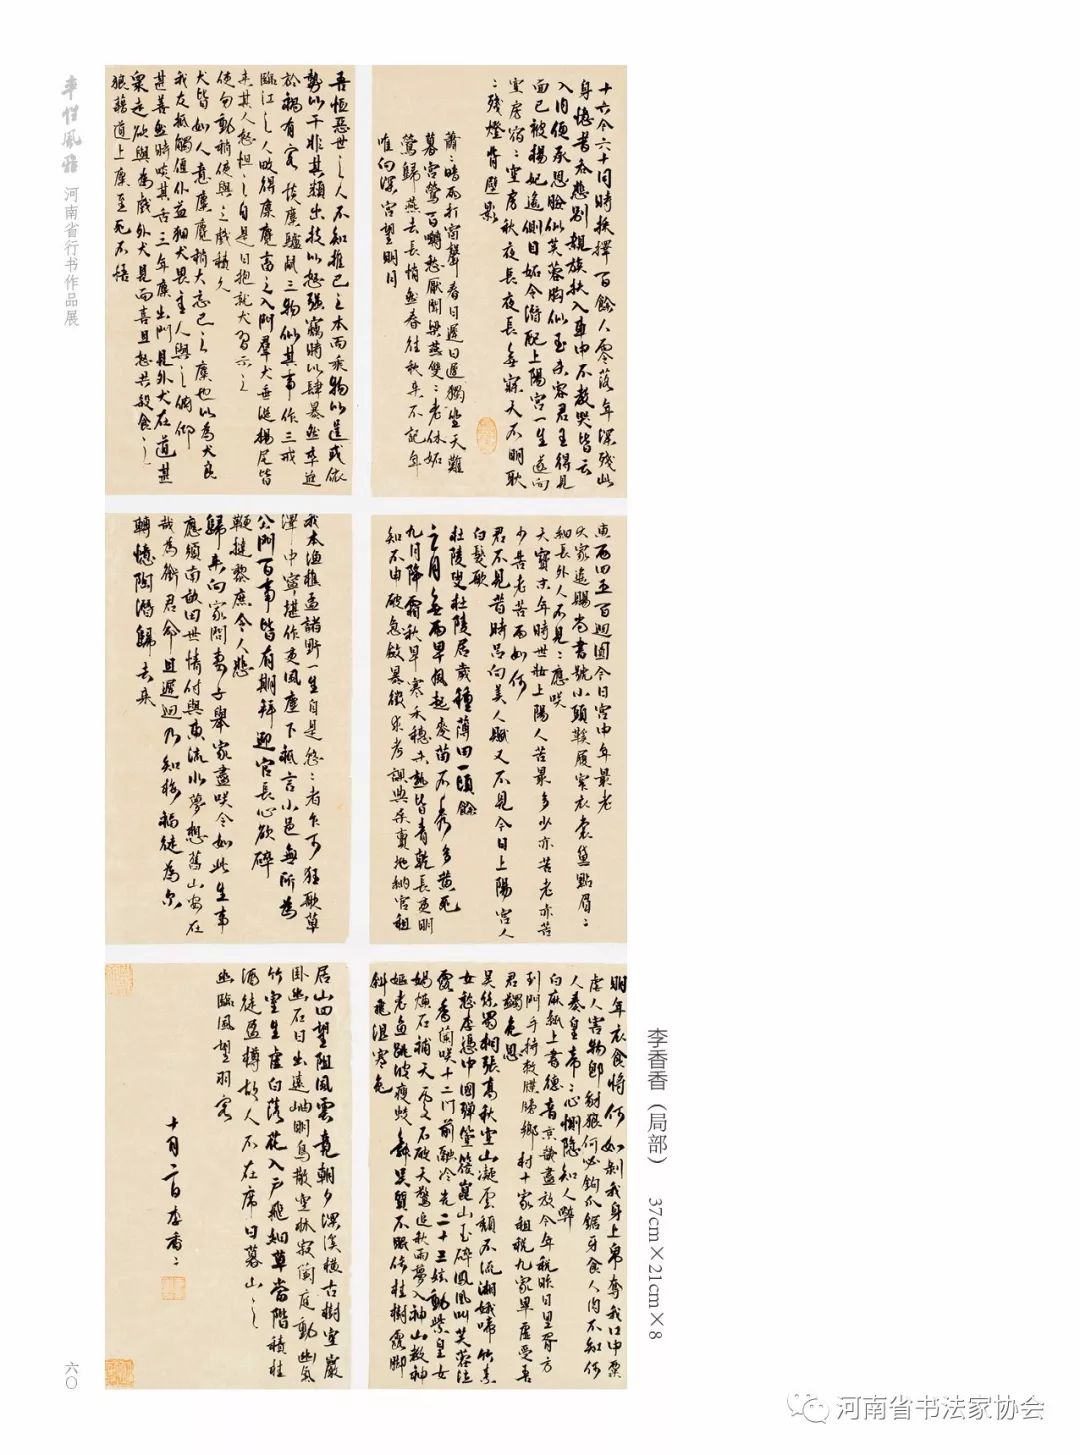 率性風雅
河南省行书作品展
十六今六十同時採擇百餘人零落年深殘此
身憶昔吞悲別親族扶入車中不教哭皆云
入内便承恩臉似芙蓉胸似玉未容君王得見
面已被楊妃遙側目妬令潛配上陽宮一生遂向
空房宿宿空房秋夜長夜長無寐天不明耿
耿殘燈背壁影
蕭蕭暗雨打窗聲春日遲日遲獨坐天難
暮宮鶯百囀愁厭聞梁燕雙雙老休妬
鶯歸燕去長悄然春往秋來不記年
唯向深宮望明月
吾恒惡世之人不知推己之本而乘物以逞或依
勢以干非其類出技以怒强竊時以肆暴然卒迨
於禍有客談麋驢鼠三物似其事作三戒
臨江之人畋得麋麑畜之入門羣犬垂涎揚尾皆
來其人怒怛之自是日抱就犬習示之
使勿動稍使與之戲積久
犬皆如人意麋麑稍大忘己之麋也以為犬良
我友抵觸偃仆益狎犬畏主人與之俯仰
甚善然時啖其舌三年麋出門見外犬在道甚
衆走欲與為戲外犬見而喜且怒共殺食之
狼藉道上麋至死不悟
東西四五百迴圓今日宮中年最老
大家遙賜尚書號小頭鞋履窄衣裳黛點眉
細長外人不見見應咲
天寶末年時世妝上陽人苦最多少亦苦老亦苦
少苦老苦兩如何
君不見昔時吕向美人賦又不見今日上陽宮人
白髮歌
杜陵叟杜陵居歲種薄田一頃餘
三月無雨旱風起麥苗不秀多黄死
九月降霜秋早寒禾穗未熟皆青乾長吏明
知不申破急斂暴徵求考課典桑賣地納官租
我本漁樵孟諸野一生自是悠悠者乍可狂歌草
澤中寧堪作吏風塵下祇言小邑無所為
公門百事皆有期拜迎官長心欲碎
鞭撻黎庶令人悲
歸來向家問妻子舉家盡咲今如此生事
應須南畝田世情付與東流水夢想舊山安在
哉為銜君命且遲迴乃知梅福徒為尔
轉憶陶潛歸去來
明年衣食將何如剥我身上帛奪我口中粟
虐人害物即豺狼何必鉤爪鋸牙食人肉不知何
人奏皇帝帝心惻隐知人弊
白麻紙上書德音京畿盡放今年税昨日里胥方
到門手持敕牒牓鄉村十家租税九家畢虚受吾
君蠲免恩
吴絲蜀桐張高秋空山凝雲頹不流湘娥啼竹素
女愁李憑中國彈箜篌崑山玉碎鳳凰叫芙蓉泣
露香蘭咲十二門前融冷光二十三絃動紫皇女
媧煉石補天處石破天驚逗秋雨夢入神山教神
嫗老魚跳波瘦蛟舞吴質不眠倚桂樹露脚
斜飛濕寒兔
居山四望阻風雲竟朝夕深溪横古樹空巖
卧幽石日出遠岫明鳥散空林寂蘭庭動幽氣
竹室生虚白落花入户飛細草當階積桂
酒徒盈樽故人不在席日暮山之
幽臨風望羽客
十月二日李香香
李香香（局部） 37cm×21cm×8
六〇
河南省书法家协会